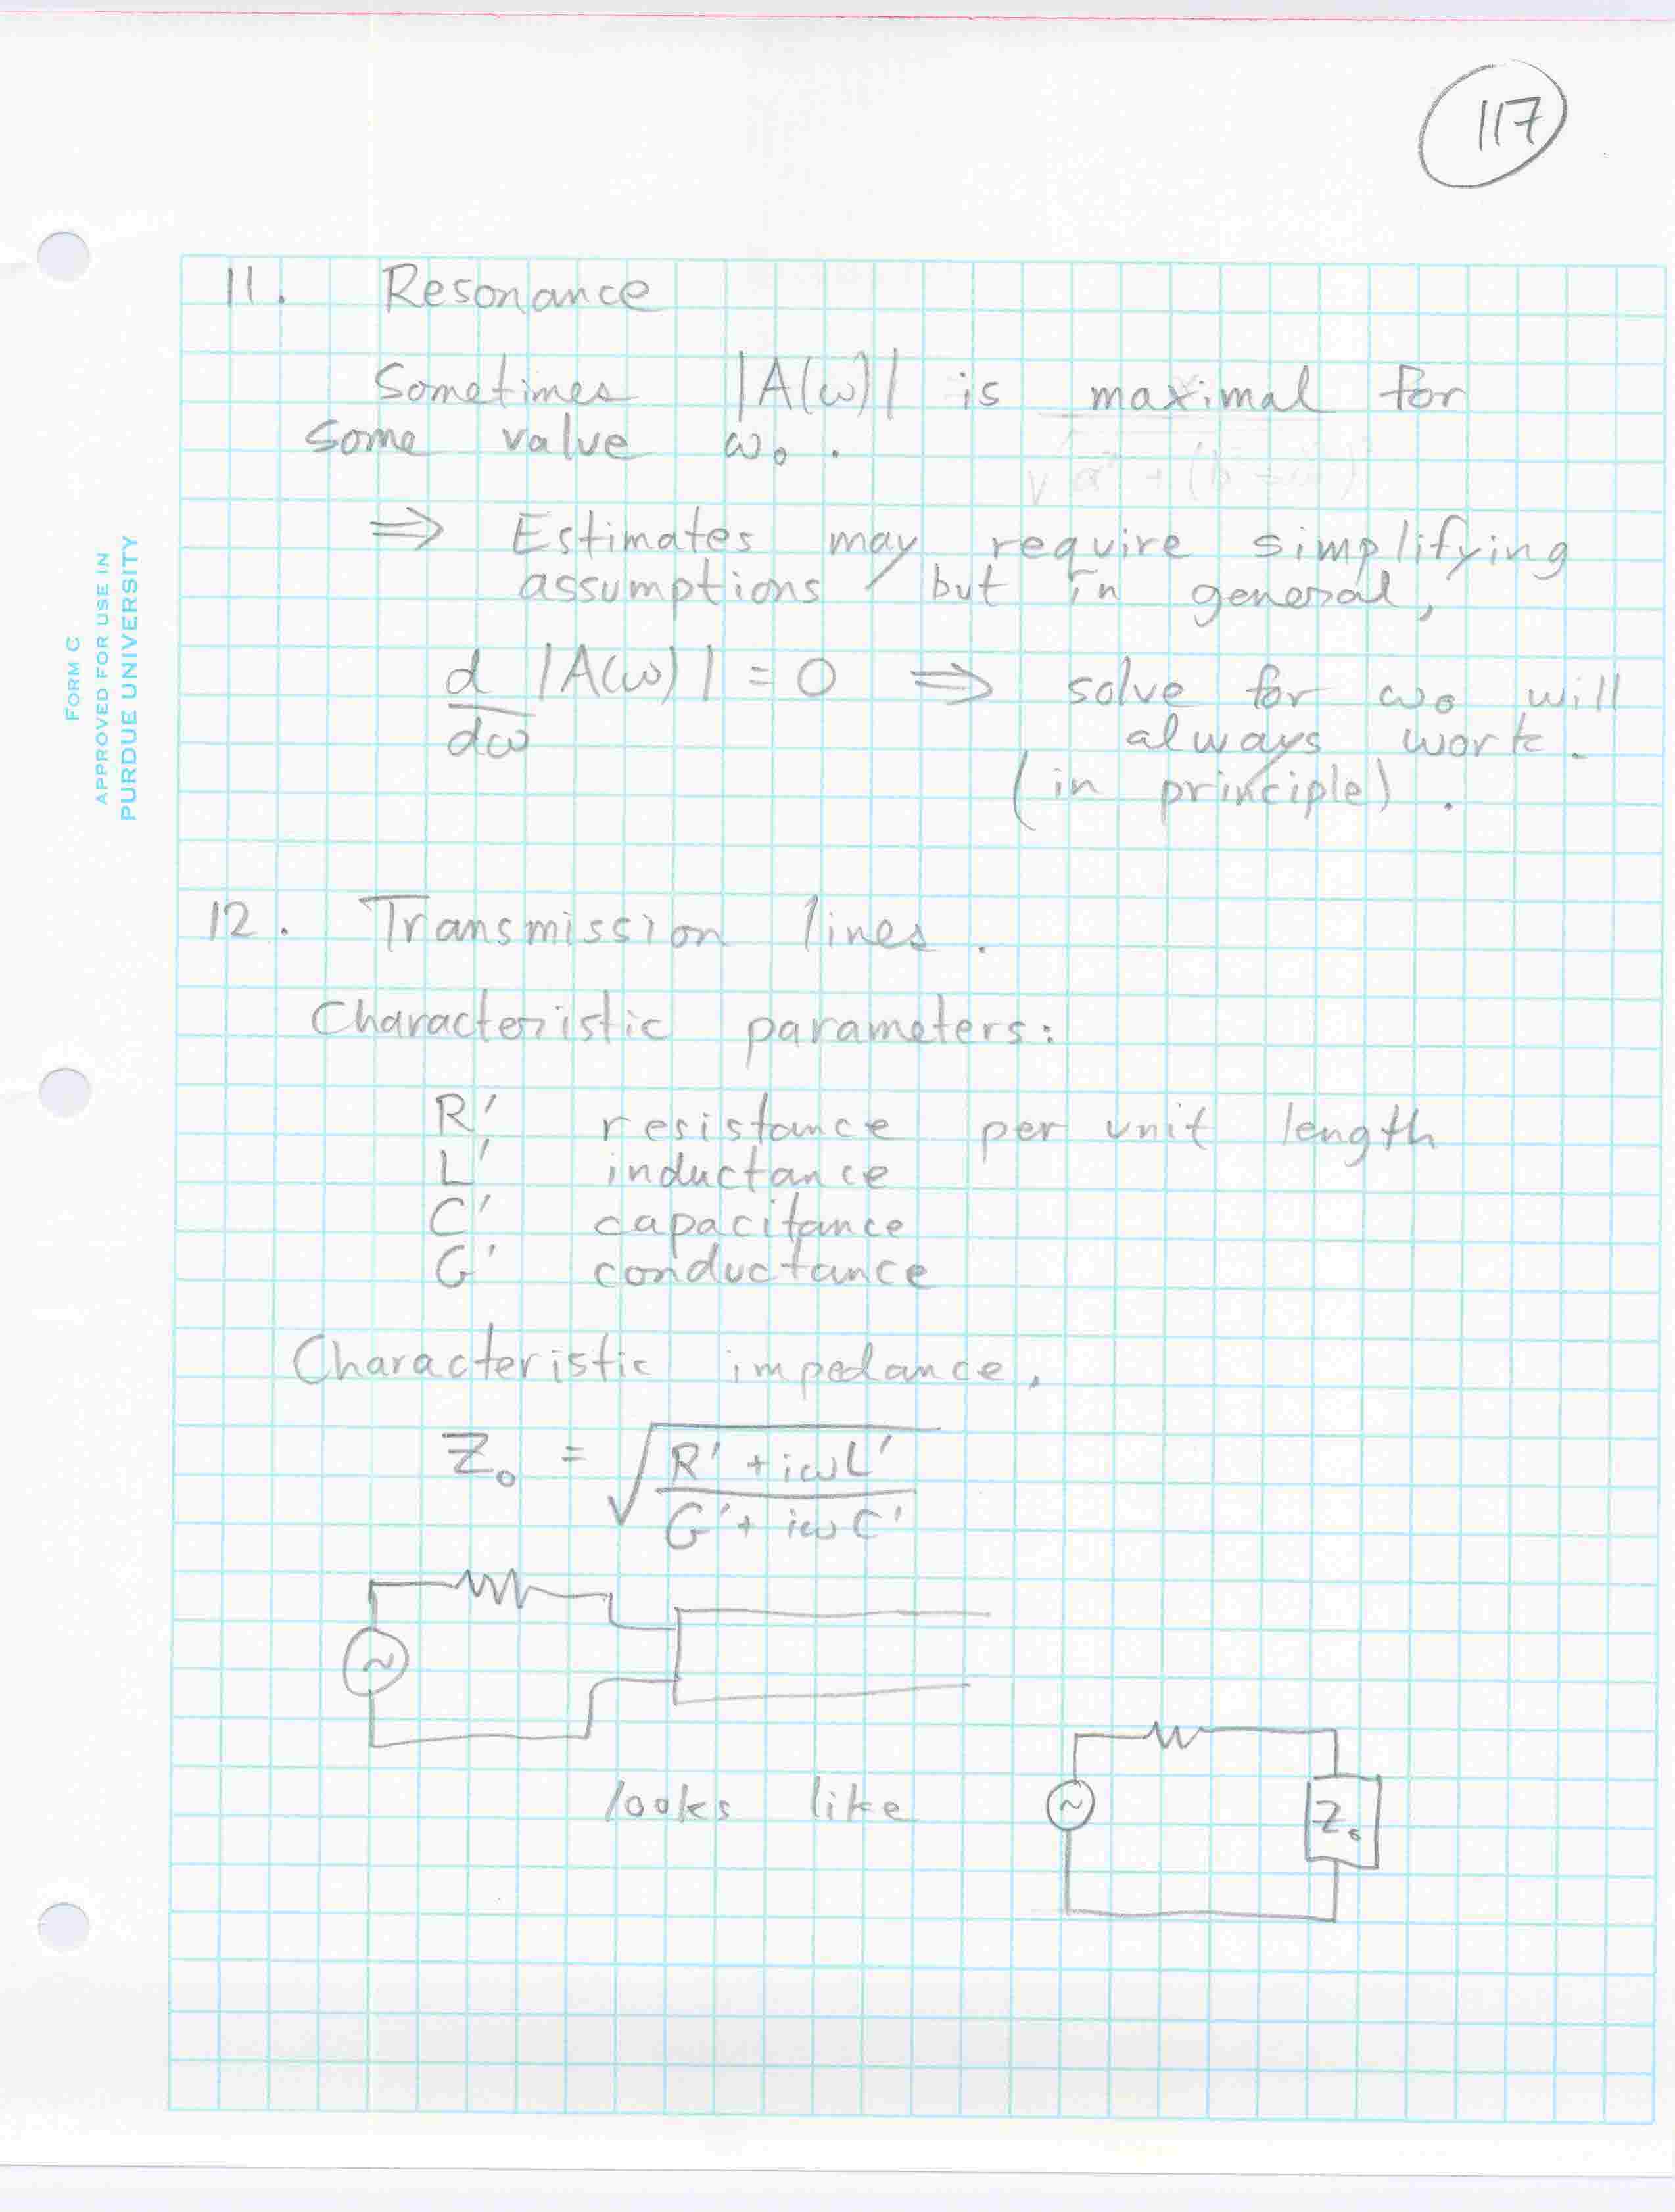 117
FORM C
APPROVED FOR USE IN
PURDUE UNIVERSITY
11. Resonance
Sometimes |A(ω)| is maximal for
some value ω₀.
⇒ Estimates may require simplifying
assumptions but in general,
d/dω |A(ω)| = 0 ⇒ solve for ω₀ will
always work.
(in principle).
12. Transmission lines.
Characteristic parameters:
R' resistance per unit length
L' inductance
C' capacitance
G' conductance
Characteristic impedance.
Z₀ = √((R' + iωL')/(G' + iωC'))
looks like
Z₀